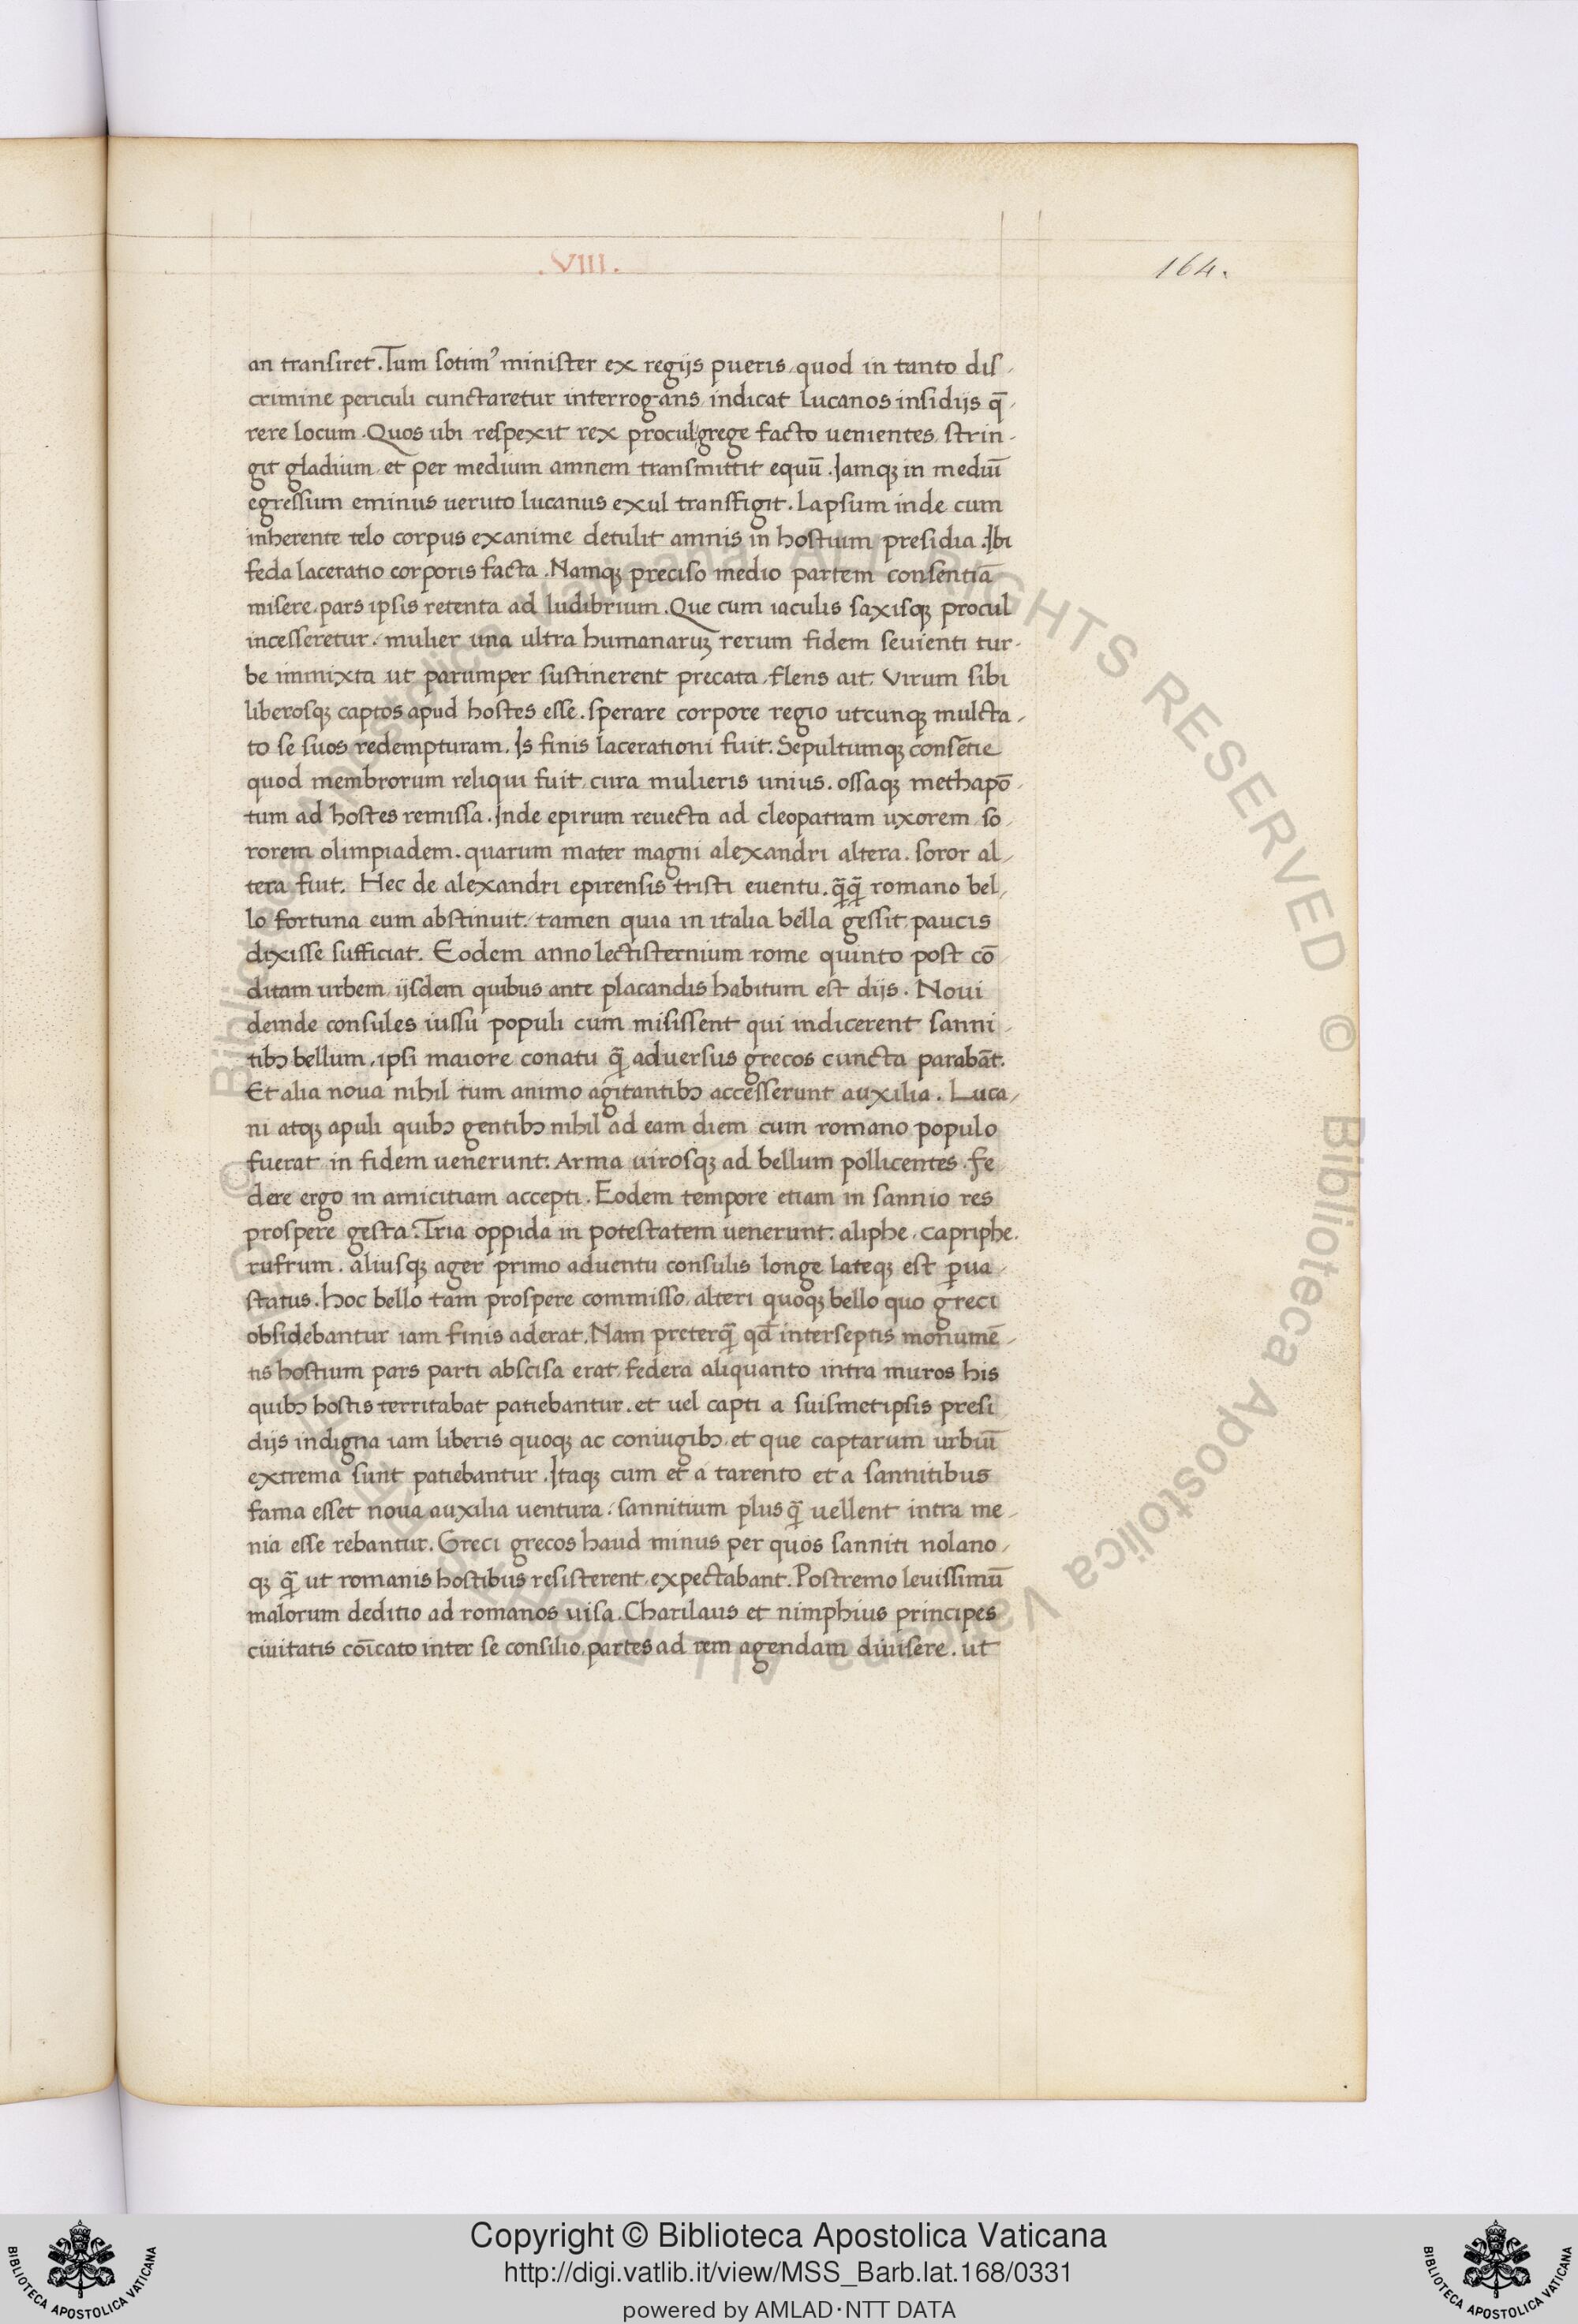 .VIII.
164.
an transiret. Tum sotimꝰ minister ex regijs pueris, quod in tanto dis-
crimine periculi cunctaretur interrogans, indicat Lucanos insidijs q̄-
rere locum. Quos ubi respexit rex procul grege facto uenientes, strin-
git gladium, et per medium amnem transmittit equū. Iamqꝫ in mediū
egressum eminus ueruto lucanus exul transfigit. Lapsum inde cum
inherente telo corpus exanime detulit amnis in hostium presidia. Ibi
feda laceratio corporis facta. Namqꝫ preciso medio partem consentiā
misere. pars ipsis retenta ad ludibrium. Que cum iaculis saxisqꝫ procul
incesseretur. mulier una ultra humanaruꝫ rerum fidem seuienti tur-
be immixta ut parumper sustinerent precata, flens ait. Virum sibi
liberosqꝫ captos apud hostes esse. sperare corpore regio utcunqꝫ mulcta-
to se suos redempturam. Is finis lacerationi fuit. Sepultumqꝫ consētie
quod membrorum reliqui fuit, cura mulieris unius. ossaqꝫ methapō-
tum ad hostes remissa. Inde epirum reuecta ad cleopatram uxorem, so-
rorem olimpiadem. quarum mater magni alexandri altera. soror al-
tera fuit. Hec de alexandri epirensis tristi euentu. qꝫ̄qꝫ̄ romano bel-
lo fortuna eum abstinuit, tamen quia in italia bella gessit, paucis
dixisse sufficiat. Eodem anno lectisternium rome quinto post cō-
ditam urbem, ijsdem quibus ante placandis habitum est dijs. Noui
deinde consules iussu populi cum misissent qui indicerent sanni-
tibꝫ bellum, ipsi maiore conatu q̄ aduersus grecos cuncta parabāt.
Et alia noua nihil tum animo agitantibꝫ accesserunt auxilia. Luca-
ni atqꝫ apuli quibꝫ gentibꝫ nihil ad eam diem cum romano populo
fuerat in fidem uenerunt. Arma uirosqꝫ ad bellum pollicentes. fe-
dere ergo in amicitiam accepti. Eodem tempore etiam in sannio res
prospere gesta. Tria oppida in potestatem uenerunt. aliphe, capriphe.
rufrum. aliusqꝫ ager primo aduentu consulis longe lateqꝫ est ꝑua-
status. Hoc bello tam prospere commisso, alteri quoqꝫ bello quo greci
obsidebantur iam finis aderat. Nam preterq̄ qđ interseptis monumē-
tis hostium pars parti abscisa erat, federa aliquanto intra muros his
quibꝫ hostis territabat patiebantur. et uel capti a suismetipsis presi-
dijs indigna iam liberis quoqꝫ ac coniugibꝫ, et que captarum urbiū
extrema sunt patiebantur. Itaqꝫ cum et a tarento et a sannitibus
fama esset noua auxilia uentura. sannitium plus q̄ uellent intra me-
nia esse rebantur. Greci grecos haud minus per quos sanniti nolano-
qꝫ q̄ ut romanis hostibus resisterent, expectabant. Postremo leuissimū
malorum deditio ad romanos uisa. Charilaus et nimphius principes
ciuitatis cōicato inter se consilio, partes ad rem agendam diuisere. ut
© Biblioteca Apostolica Vaticana ALL RIGHTS RESERVED
© Biblioteca Apostolica Vaticana
Copyright © Biblioteca Apostolica Vaticana
http://digi.vatlib.it/view/MSS_Barb.lat.168/0331
powered by AMLAD·NTT DATA
BIBLIOTECA APOSTOLICA VATICANA
BIBLIOTECA APOSTOLICA VATICANA